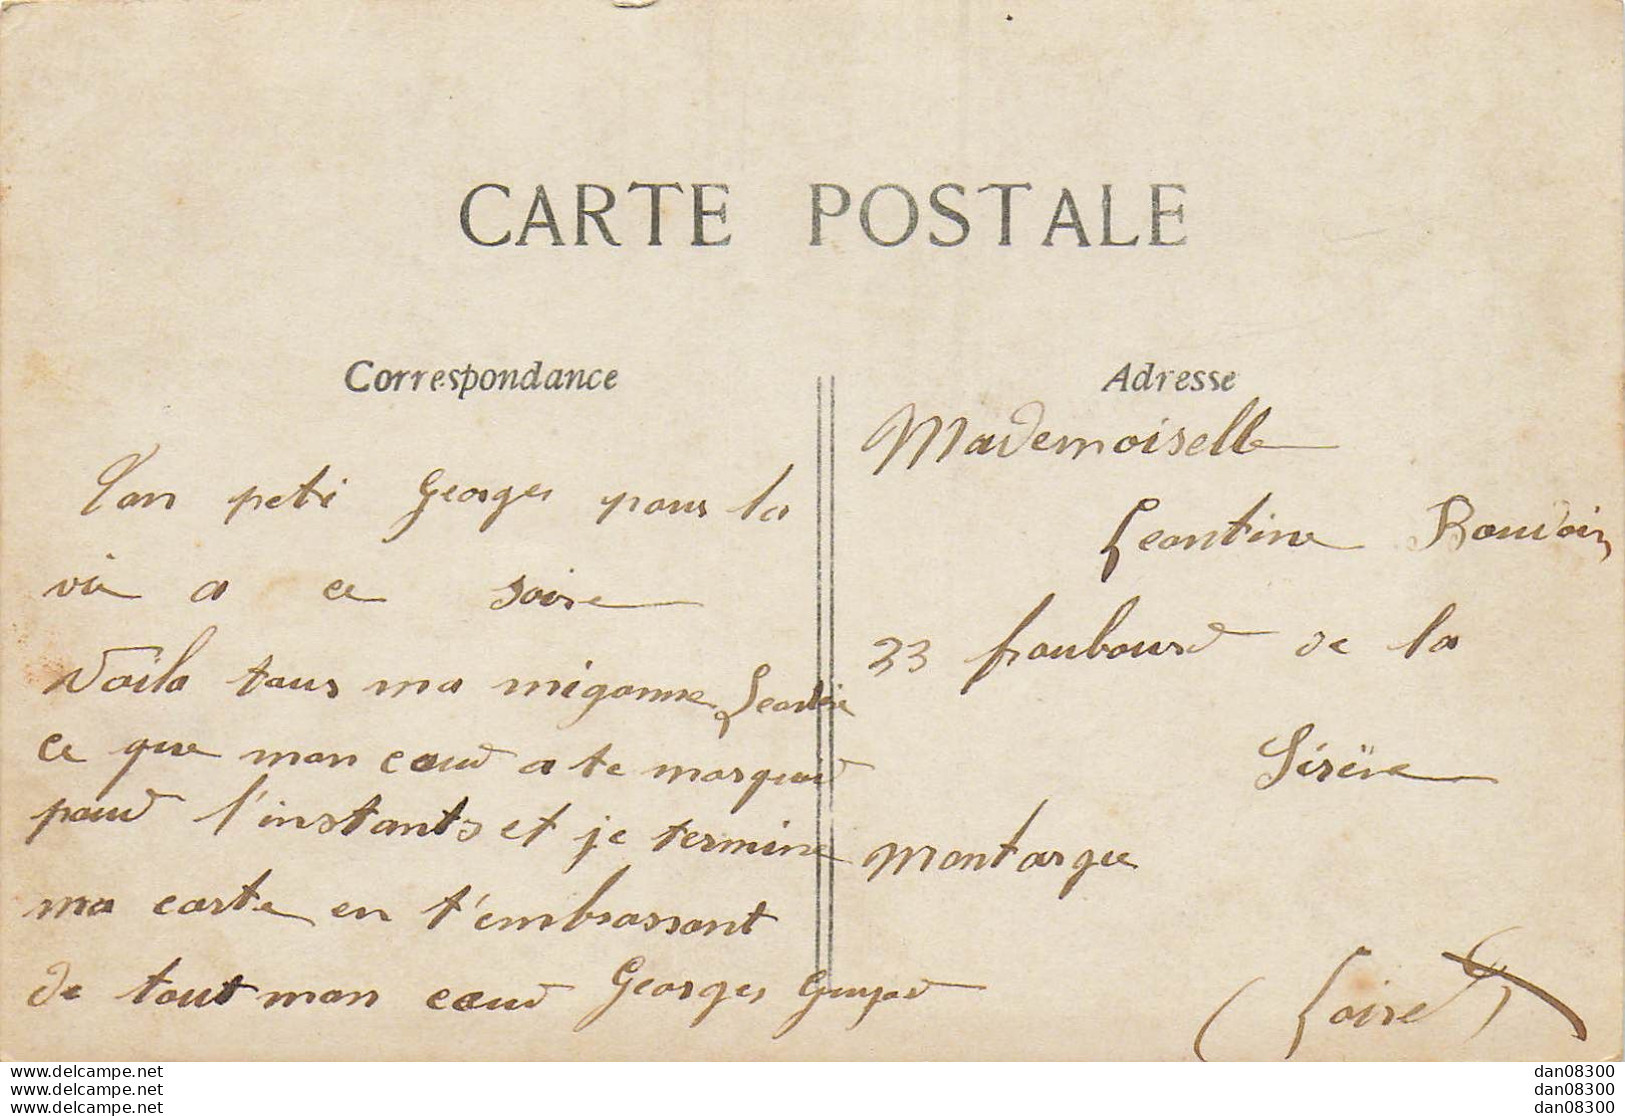 CARTE POSTALE
Correspondance
Ton peti Georges pour la
vie a ce soire
Voila tous ma migonne Leontine
ce que mon cœur a te marquer
pour l'instants et je termine
ma carte en t'embrassant
de tout mon cœur Georges
Adresse
Mademoiselle
Leontine
23 faubourd de la
Sirëne
Montargie
(Loiret)
www.delcampe.net
www.delcampe.net
www.delcampe.net
dan08300
dan08300
dan08300